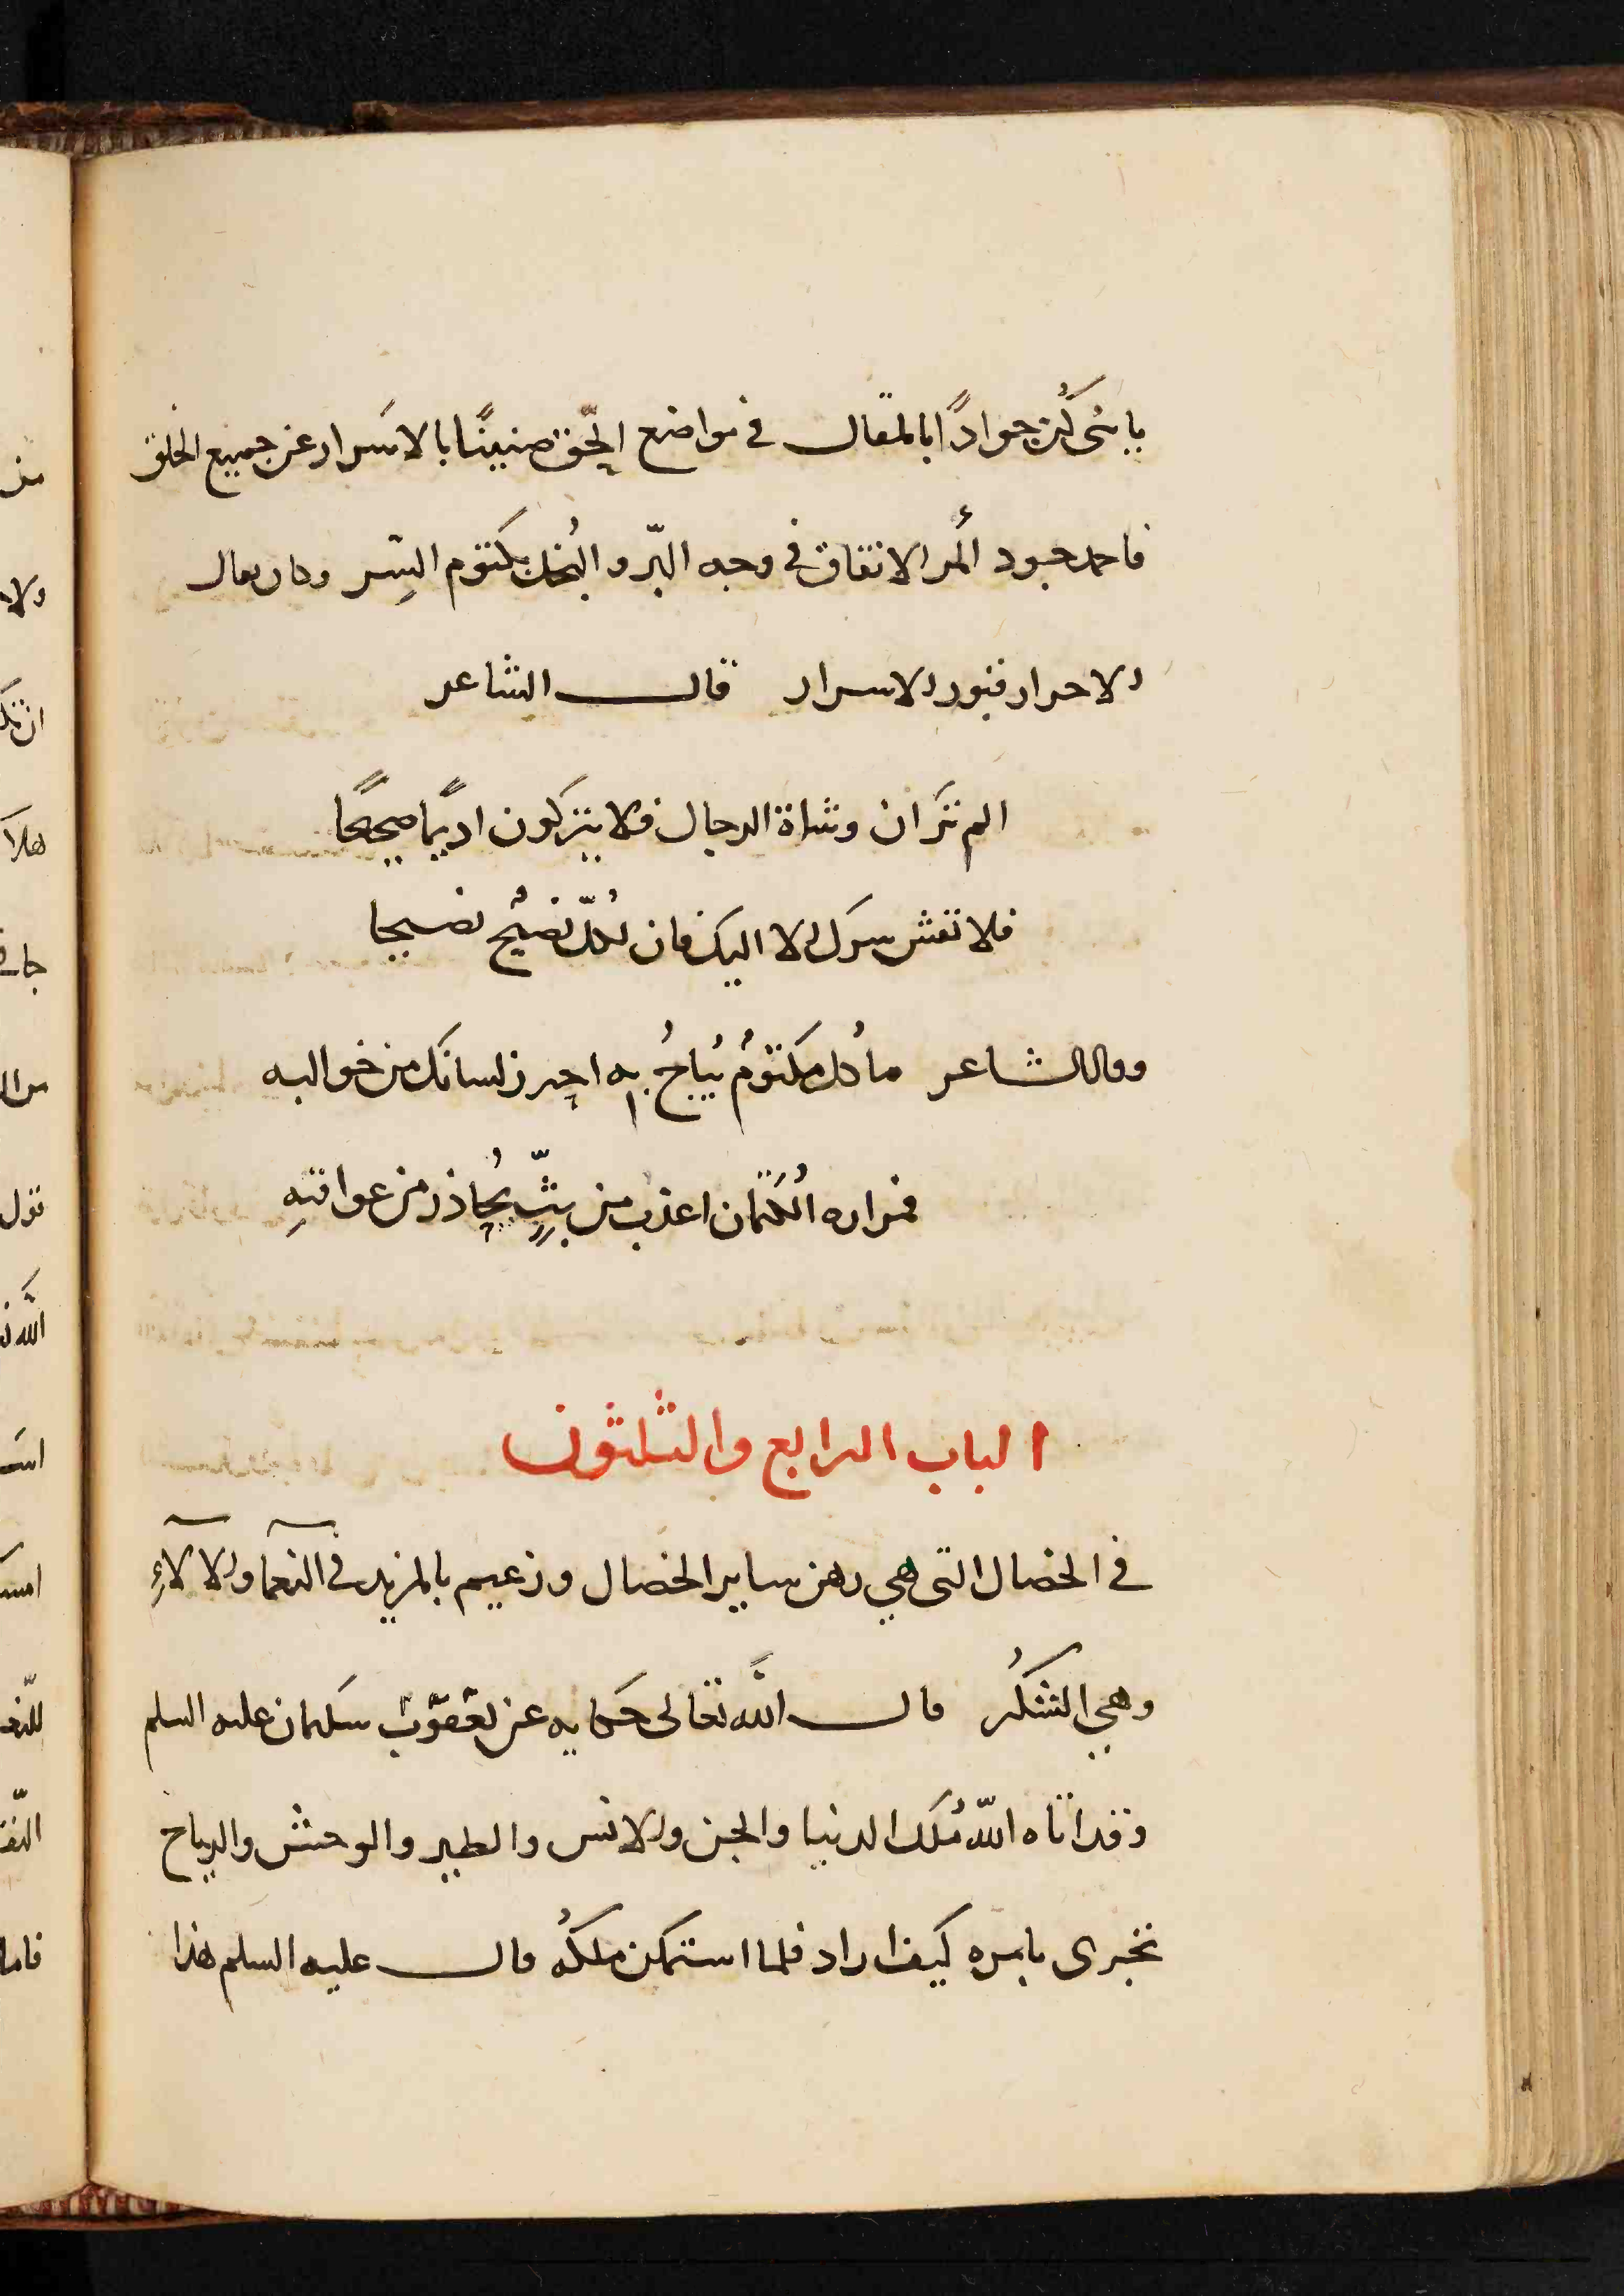 يا بنى كُن جوادًا بالمقال في مواضع الحّق ضنينًا بالاسَرار عن جميع الخلق
فاحمد جود المرء الانفاق في وجه البّر والبُخل بمكتوم السِر وكان يقال
الاحرار قبور الاسرار قال الشاعر
الم ترَ ان وشاة الرجال فلا يتركون اديمًا صحيحًا
فلا تفش سرك الا اليك فان لكُلّ نصيحٍ نصيحا
وقال الشاعر ما كل مكتومُ يُباحُ به احرز لسانك من خوالبه
فمراره الكُتمان اعذب من بثٍّ يُحاذر من عواقبهِ
الباب الرابع والثلثون
في الخصال التى هي رهن ساير الخصال وزعيم بالمزيد في النعمآ والالآءِ
وهي الشكُر قال اللَّه تعالى حكايه عن يعقوب سليمان عليه السلم
وقد اتاه اللّه مُلك الدنيا والجن والانس والطير والوحش والرياح
تجرى بامره كيف اراد فلما استمكن ملكُه قال عليه السلم هذا